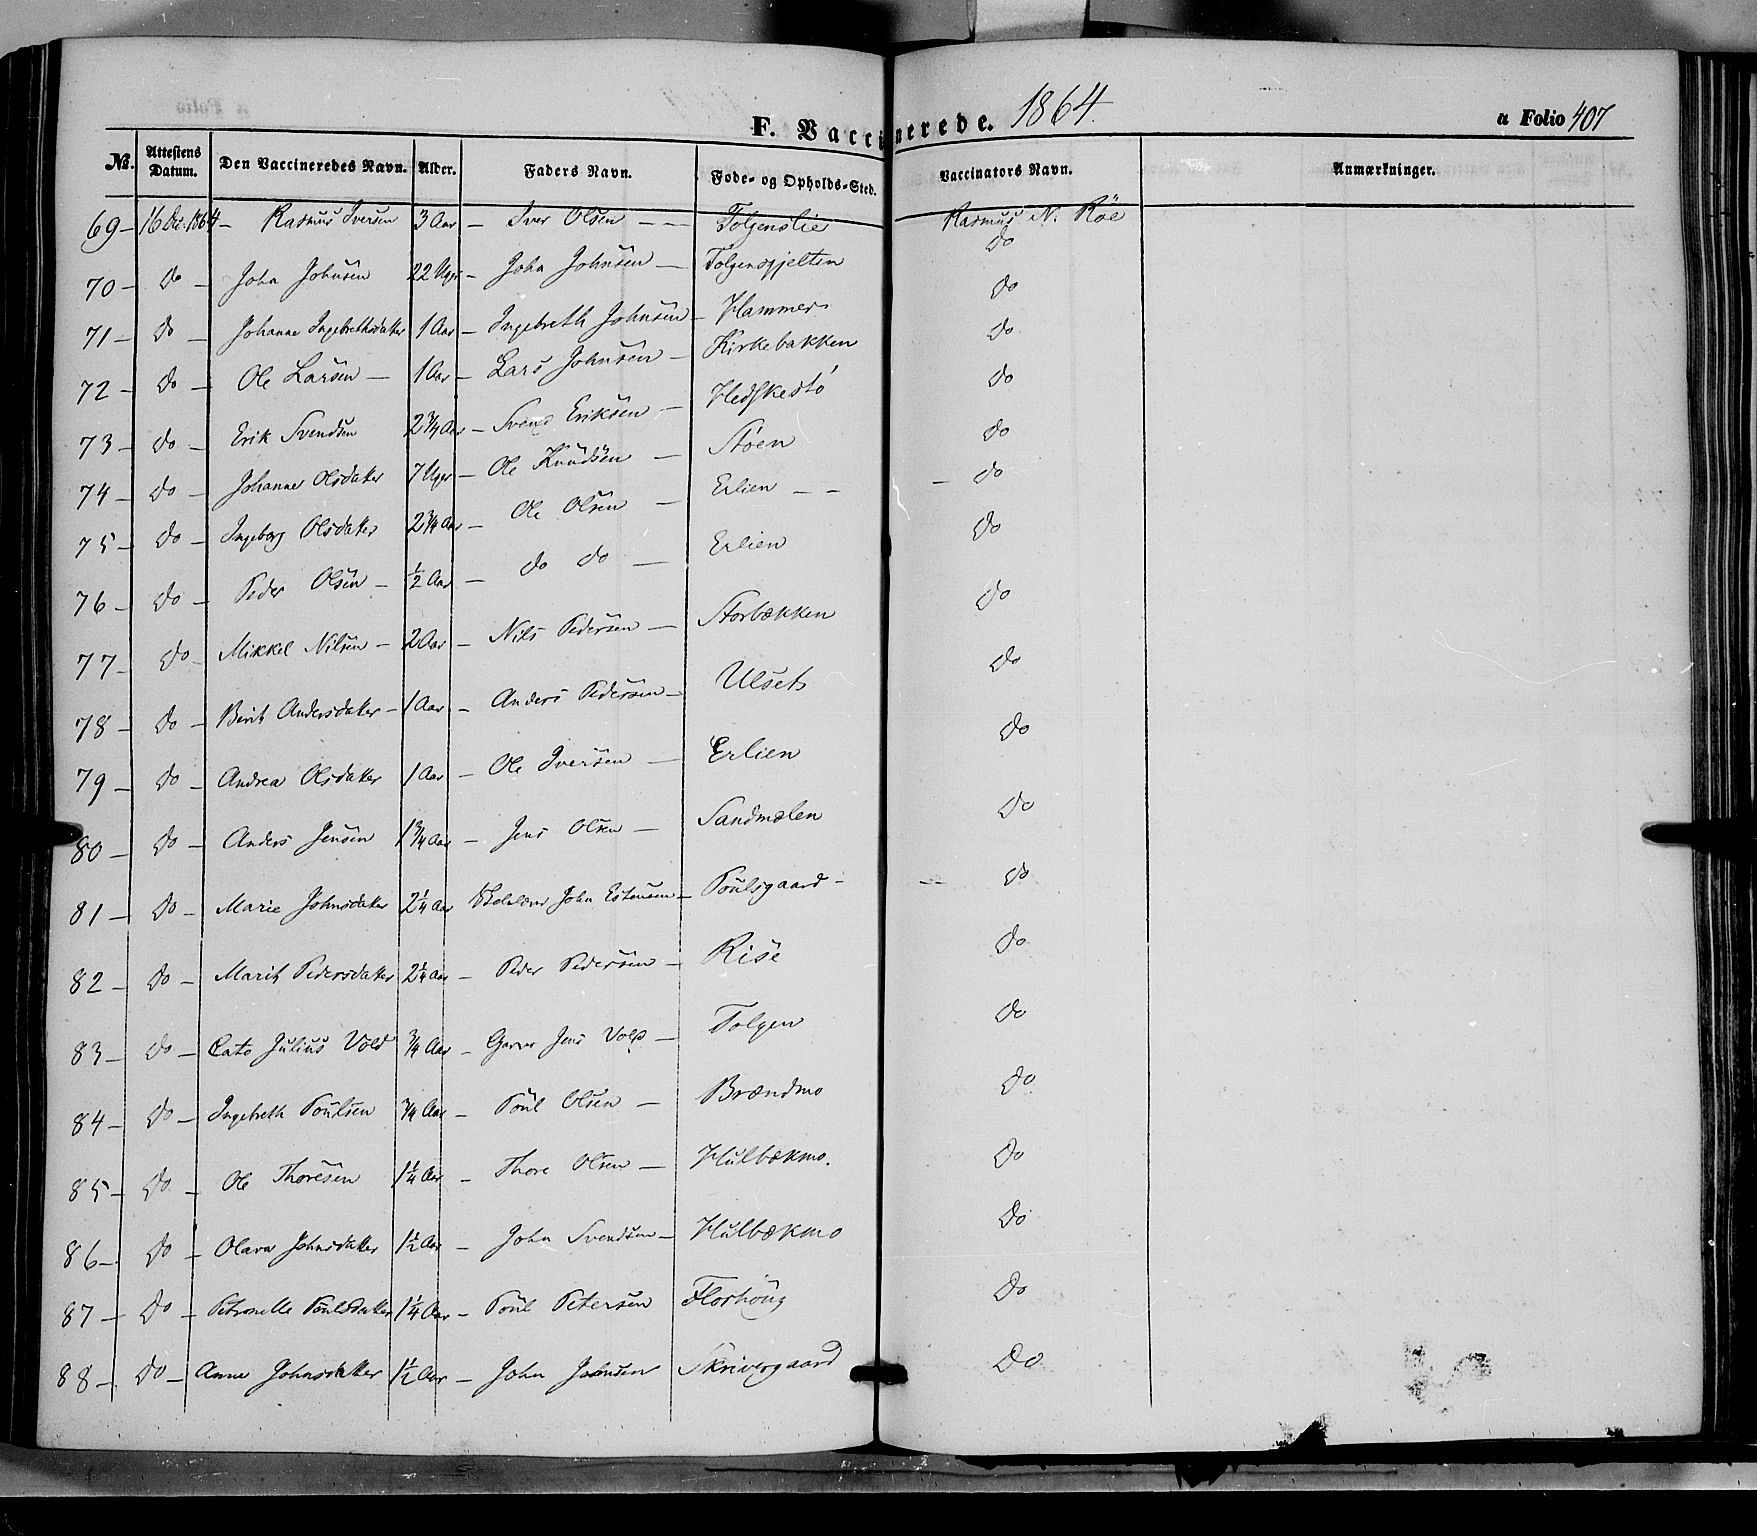 F. Vaccinerede. 1864.
a Folio 407
No. Attestens Datum. Den Vaccineredes Navn. Alder. Faders Navn. Føde- og Opholds-Sted. Vaccinators Navn. Anmærkninger.
69 – 16 De. 1864 – Rasmus Iversen 3 Aar – Iver Olsen – – Tolgenslie Rasmus N. Röe
70 – do – John Johnsen 22 Uger – John Johnsen – Tolgensgjelten do
71 – do – Johanne Ingebrethsdatter 1 Aar – Ingebreth Johnsen – Hammer do
72 – do – Ole Larsen – 1 Aar – Lars Johnsen – Kirkebakken do
73 – do – Erik Svendsen 2 3/4 Aar – Svend Eriksen – do
74 – do – Johanne Olsdatter 7 Uger – Ole Knudsen – Støen do
75 – do – Ingeborg Olsdatter 2 3/4 Aar – Ole Olsen – Erlien – – – do
76 – do – Peder Olsen – 1/2 Aar – do do – Erlien do
77 – do – Mikkel Nilsen – 2 Aar – Nils Pedersen – Storbækken do
78 – do – Berit Andersdatter – 1 Aar – Anders Pedersen – Ulset do
79 – do – Andrea Olsdatter 1 Aar – Ole Iversen – Erlien do
80 – do – Anders Jensen 1 3/4 Aar – Jens Olsen – Sandmælen do
81 – do – Marie Johnsdatter 2 1/4 Aar John Estensen – Poulsgaard – – do
82 – do – Marit Pedersdatter 2 1/4 Aar – Peder Pedersen – Rise do
83 – do – Cato Julius Vold 3/4 Aar – Garver Jens Vold – Tolgen do
84 – do – Ingebreth Poulsen 3/4 Aar – Poul Olsen – Brændmo do
85 – do – Ole Thoresen 1 1/4 Aar – Thore Olsen – Hulbækmo. do
86 – do – Olava Johnsdatter 1 1/2 Aar – John Svendsen – Hulbækmo do
87 – do – Petronelle Poulsdatter 1 1/4 Aar – Poul Petersen Floshöug do
88 – do – Anne Johnsdatter 1 1/2 Aar – John Johnsen Skrivergaard do